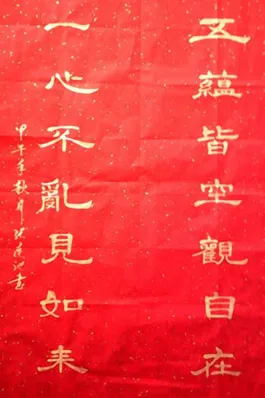 五蘊皆空觀自在
一心不亂見如來
甲午年秋月